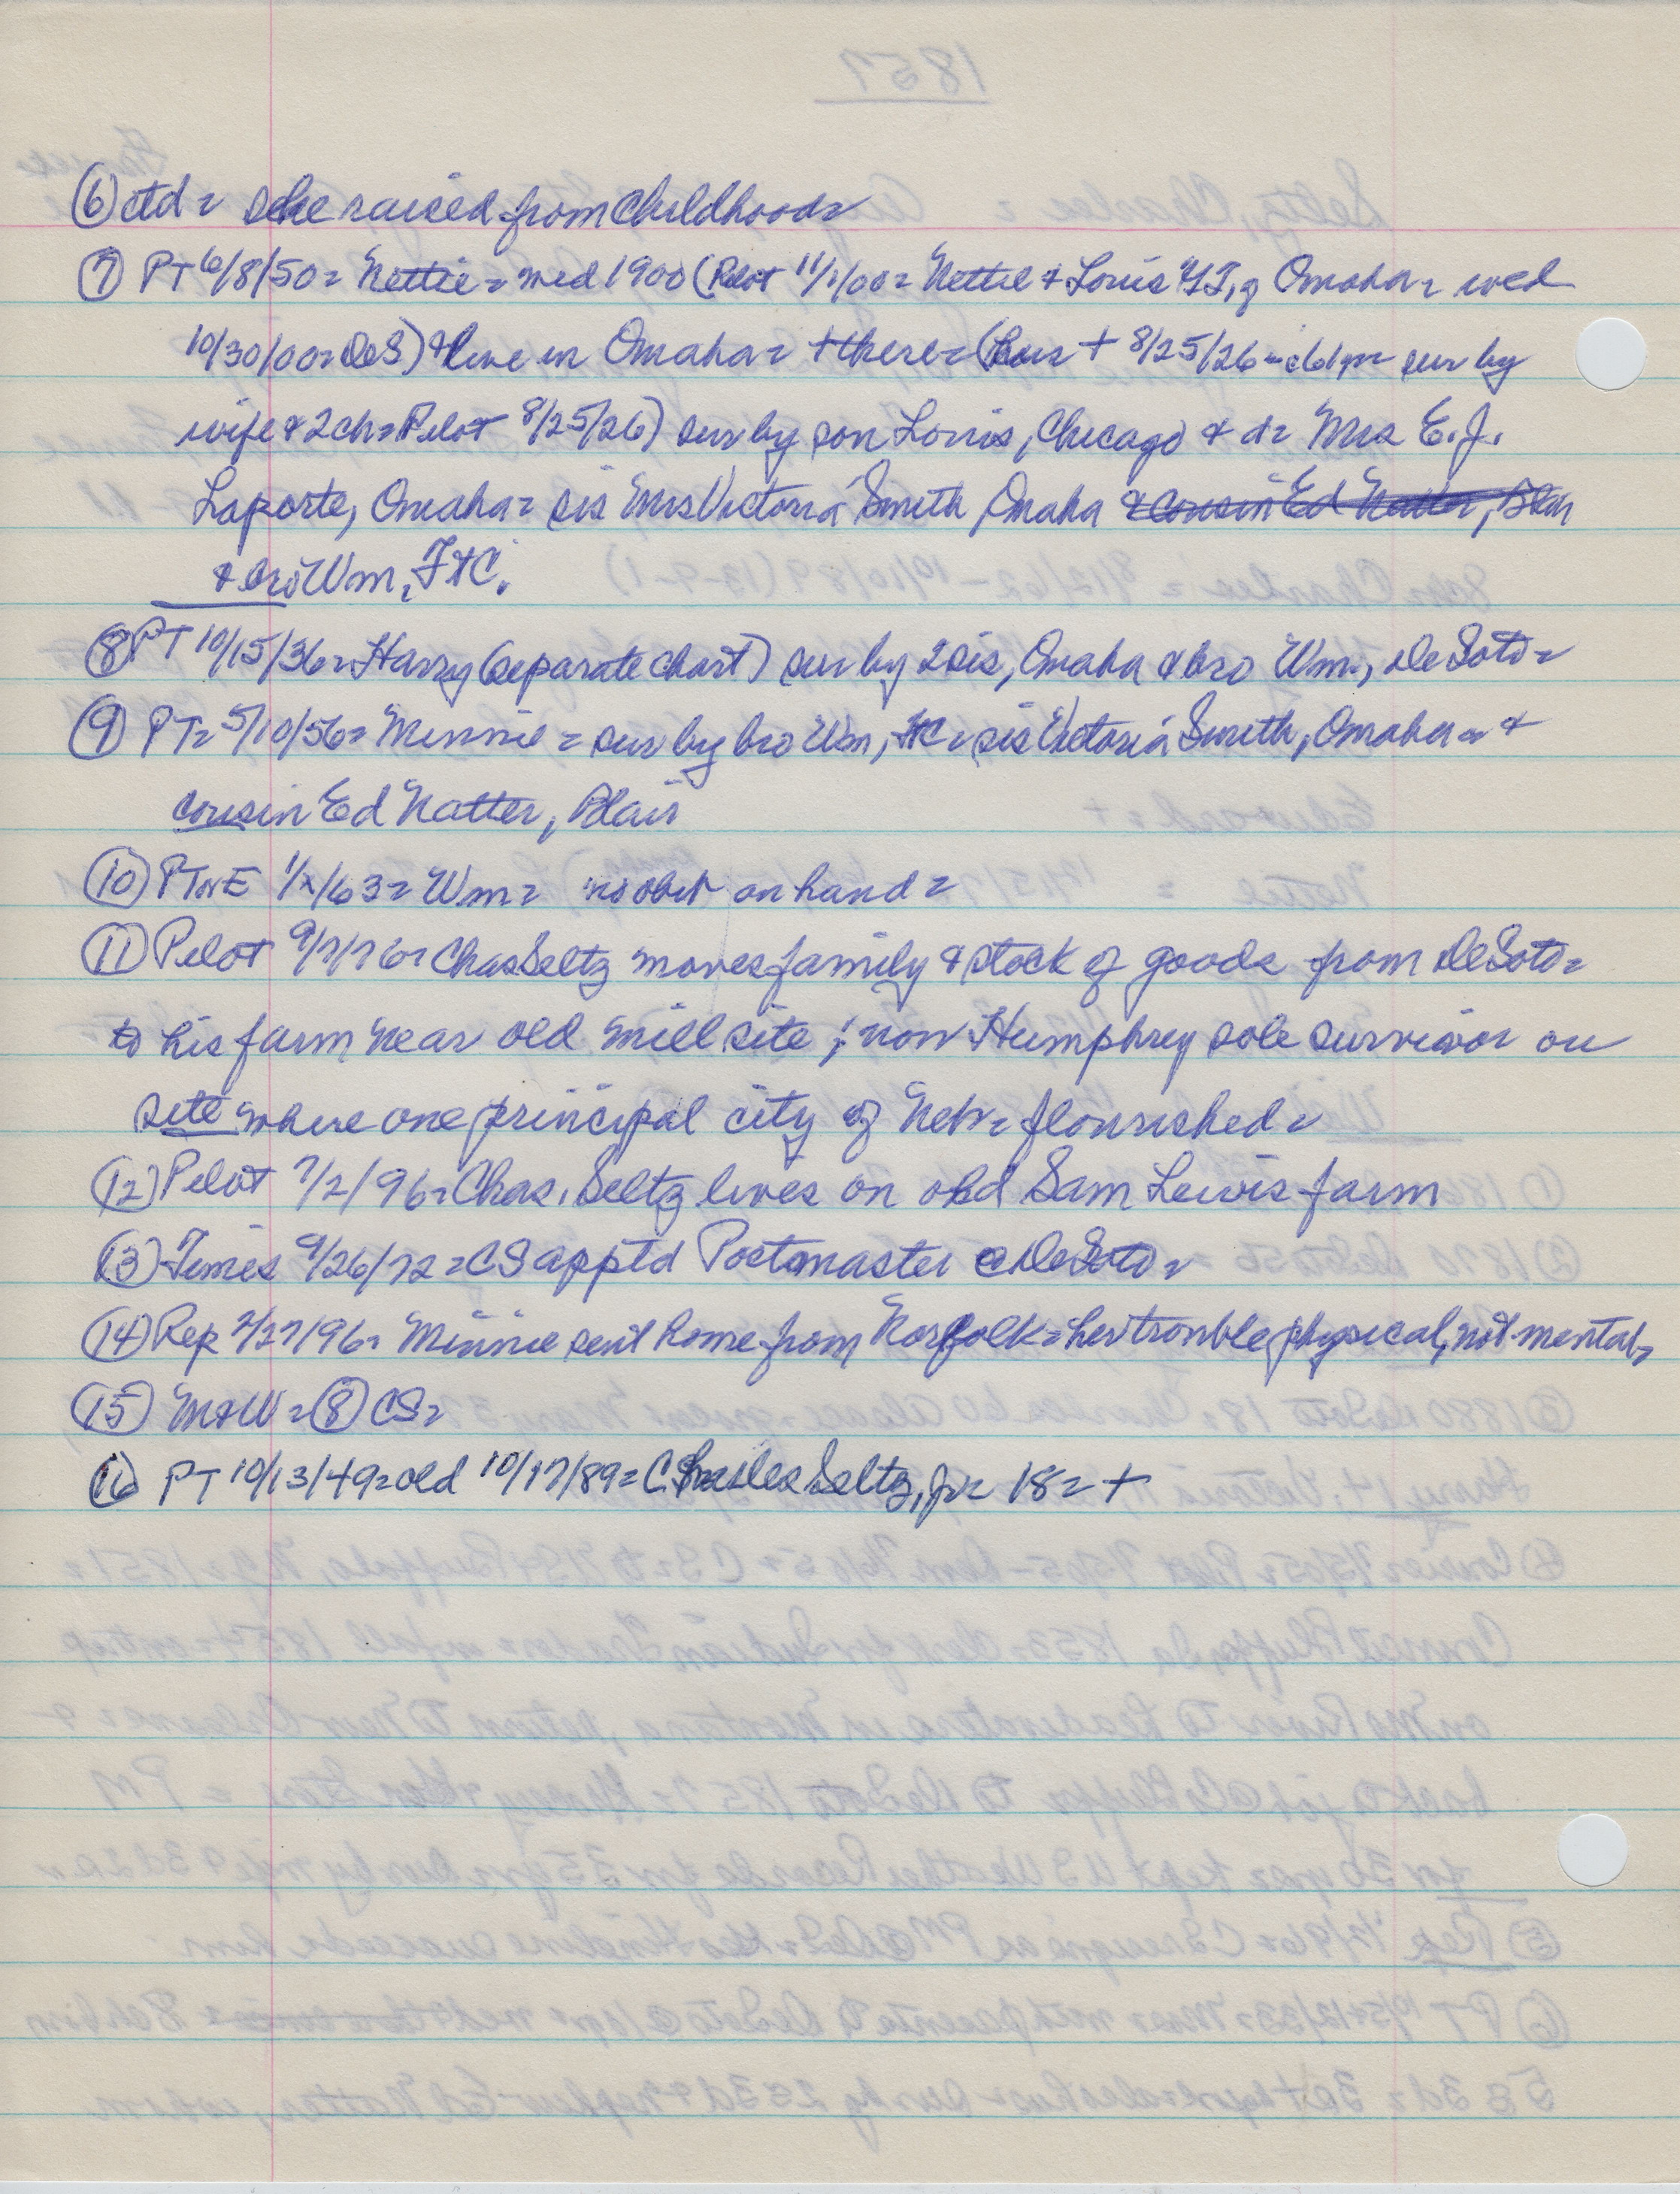 ⑥ ctd = she raised from childhood=
⑦ PT 6/8/50= Nettie = med 1900 (Pilot 11/1/00= Nettie & Louis of Omaha= wed
10/30/00= DeS) & live in Omaha= + there= ( + 8/25/26 - sur by
wife & 2 ch= Pilot 8/25/26) sur by son Louis, Chicago & d= Mrs E.J.
Laporte, Omaha= sis Mrs Victoria Smith, Omaha & cousin Ed Natter, Blair
& bro Wm, FtC.
⑧ PT 10/15/36= Harry (separate chart) sur by 2 sis, Omaha & bro Wm., DeSoto=
⑨ PT= 5/10/56= Minnie = sur by bro Wm, FtC= sis Victoria Smith, Omaha= &
cousin Ed Natter, Blair
⑩ PTorE 1/x/63= Wm= no obit on hand=
⑪ Pilot 9/7/76= Chas Seltz moves family & stock of goods from DeSoto=
to his farm near old mill site; now Humphrey sole survivor on
site where one principal city of Neb= flourished=
⑫ Pilot 7/2/96= Chas. Seltz lives on old Sam Lewis farm
⑬ Times 9/26/72= CS app'td Postmaster @ DeSoto=
⑭ Rep 2/27/96= Minnie sent home from Norfolk= her trouble physical, not mental=
⑮ M&W = ⑧ CS=
⑯ PT 10/13/49= old 10/17/89= Charles Seltz, jr= 18= +